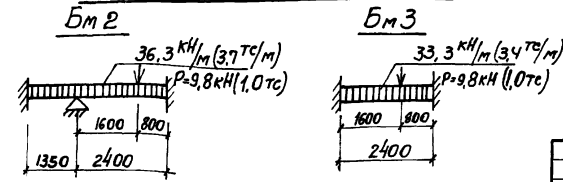 Бм 2
36,3 кН/м (3,7 тс/м)
P=9,8кН (1,0тс)
1600
800
1350
2400
Бм 3
33,3 кН/м (3,4 тс/м)
P=9,8кН (1,0тс)
1600
800
2400